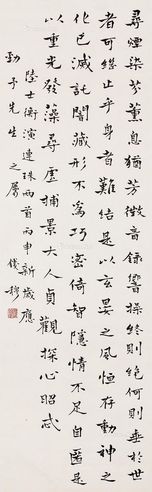 尋煙染芬薰息猶芳徵音錄響操終則絕何則垂於世
者可繼止乎身者難結是以玄晏之風恒存動神之
化已滅託闇藏形不為巧密倚智隱情不足自匿是
以重光發藻尋虛捕景大人貞觀探心昭忒
陸士衡演連珠兩首丙申新歲應
勁予先生之屬　錢穆